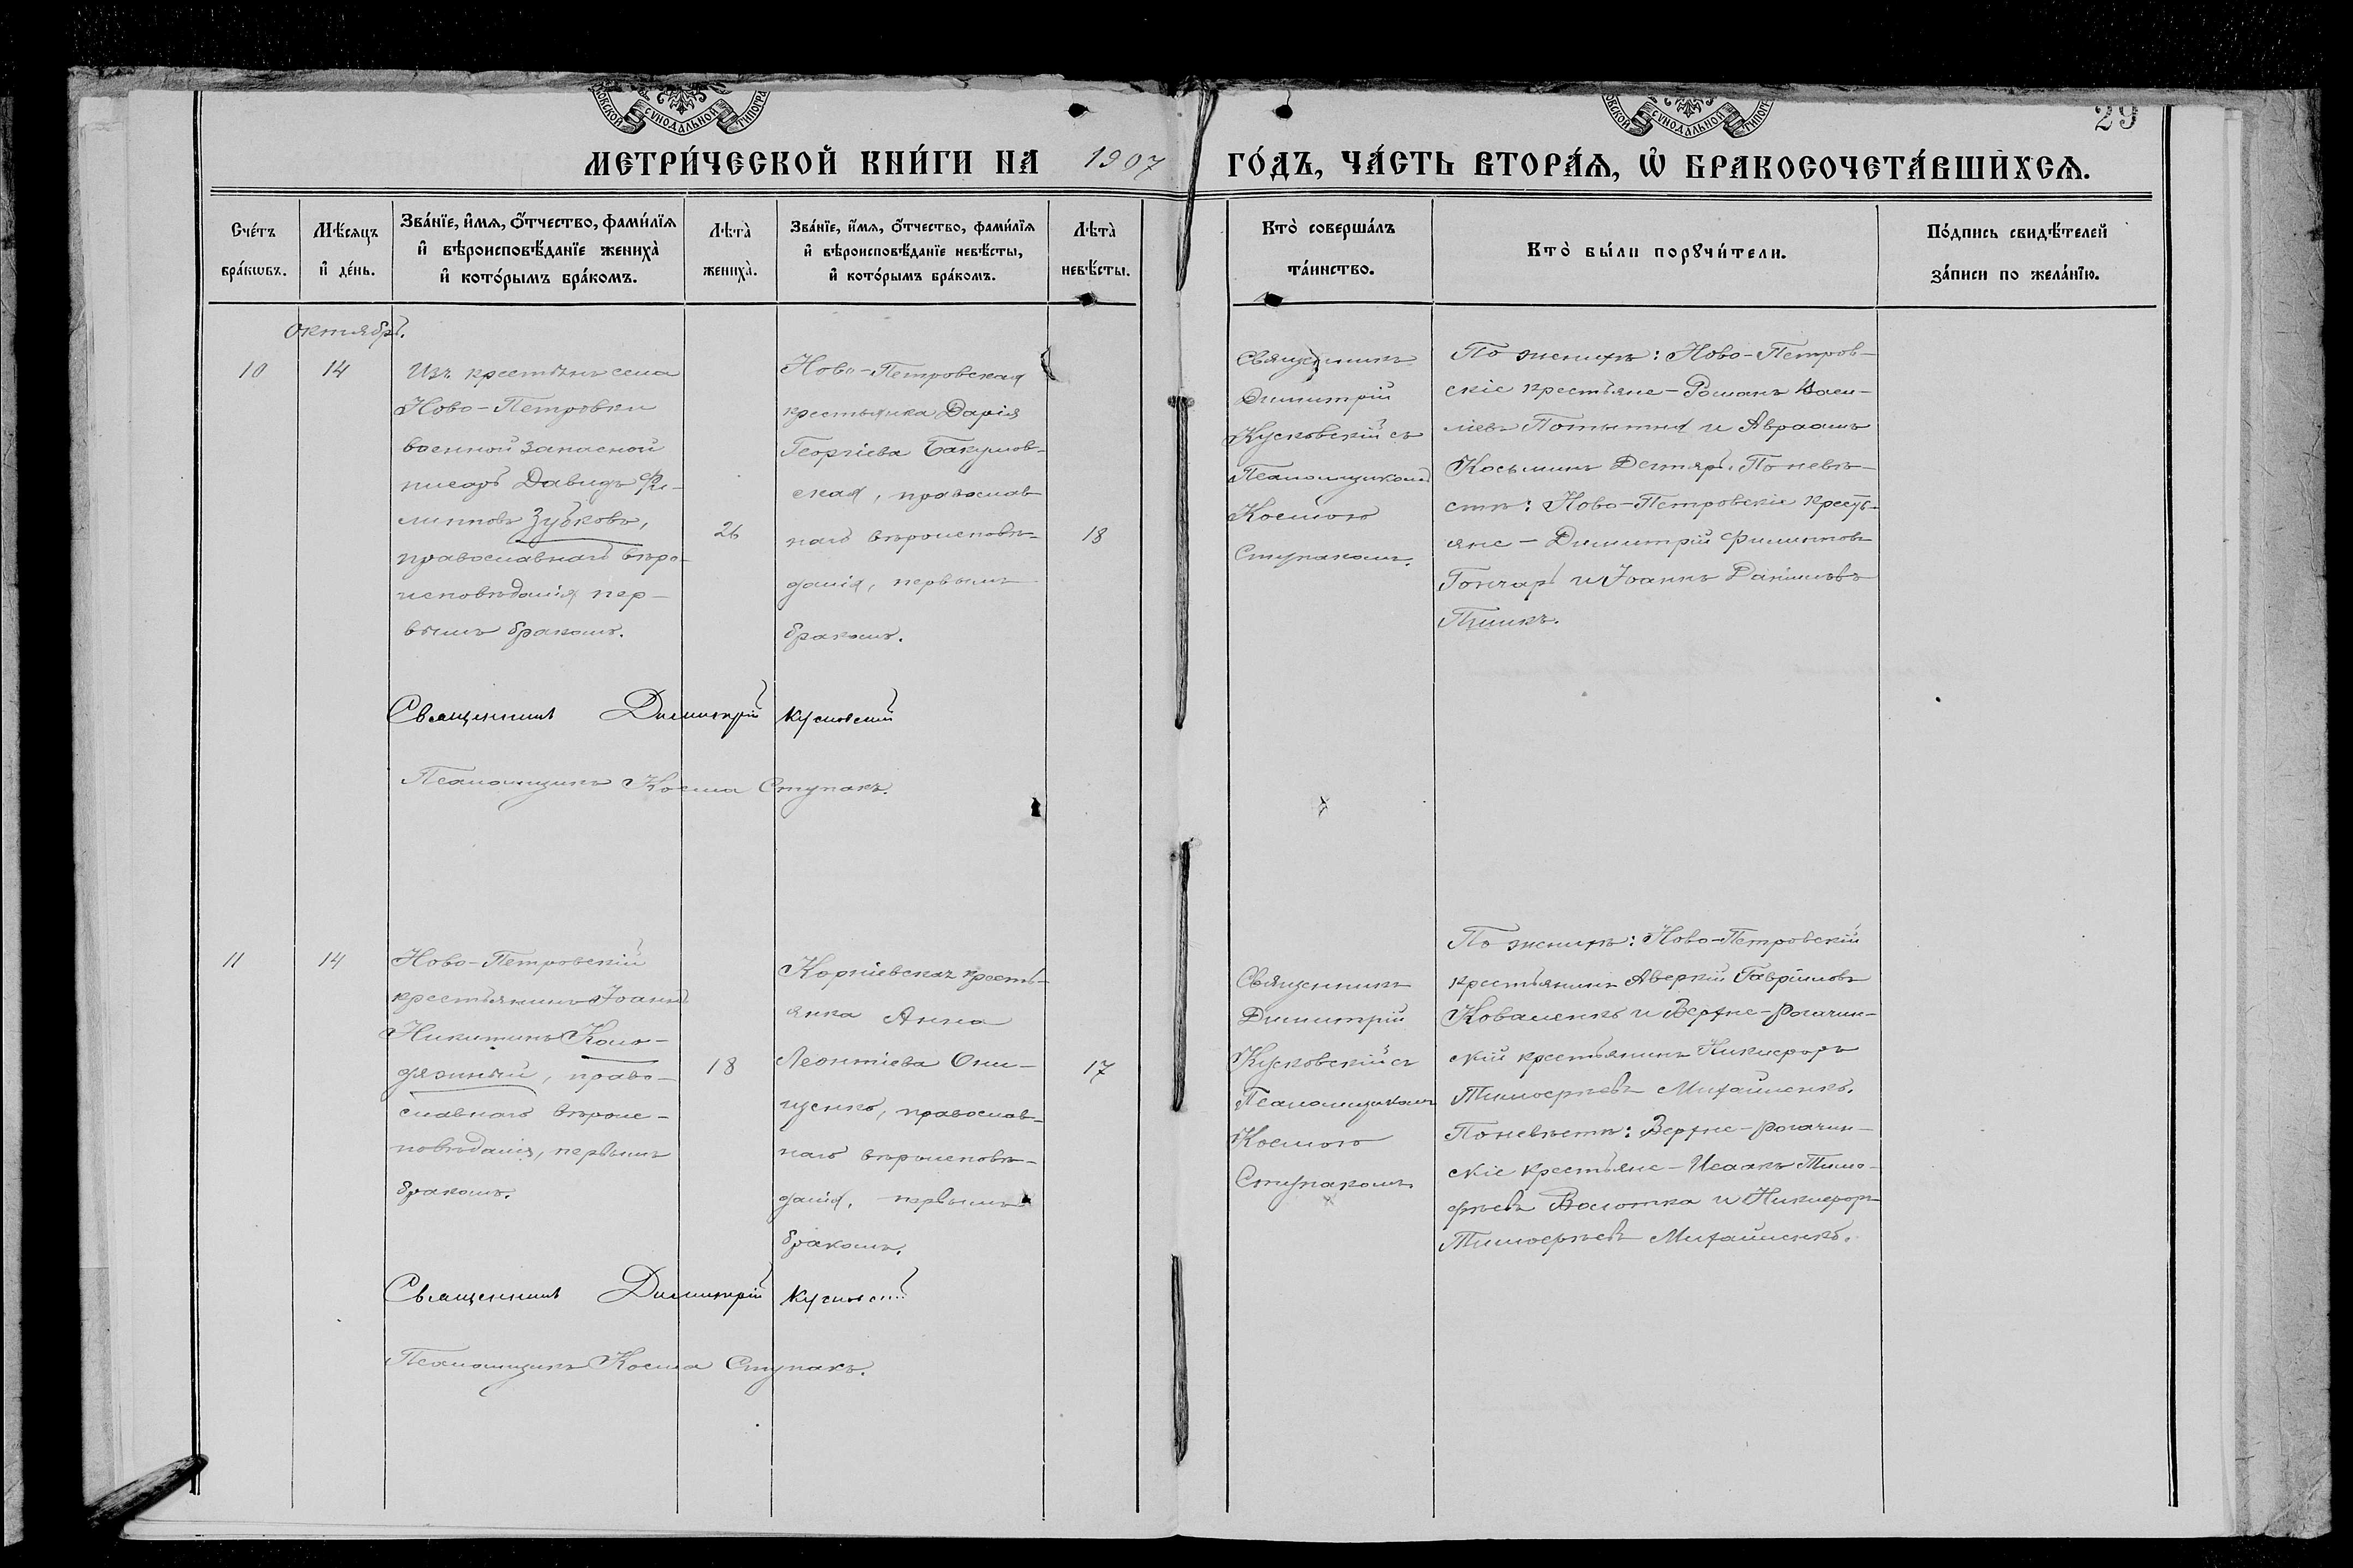 МОСКОВСКОЙ СѴНОДАЛЬНОЙ ТИПОГРА
МОСКОВСКОЙ СѴНОДАЛЬНОЙ ТИПОГ
29
МЕТРИ́ЧЕСКОЙ КНИ́ГИ НА 1907 ГО́ДЪ, ЧА́СТЬ ВТОРА́Ѧ, Ѽ БРАКОСОЧЕТА́ВШИХСѦ.
Сче́тъ бра́кѡвъ.
Мѣ́сяцъ и҆ де́нь.
Зва́нїе, и҆́мѧ, ѻ҆́тчество, фами́лїѧ
и҆ вѣроисповѣ́данїе жениха̀
и҆ кото́рымъ бра́комъ.
Лѣта̀ жениха̀.
Зва́нїе, и҆́мѧ, ѻ҆́тчество, фами́лїѧ
и҆ вѣроисповѣ́данїе невѣ́сты,
и҆ кото́рымъ бра́комъ.
Лѣта̀ невѣ́сты.
Кто̀ соверша́лъ
та́инство.
Кто̀ бы́ли порꙋчи́тели.
По́дпись свидѣ́телей
за́писи по жела́нїю.
Октябрь.
10
14
Изъ крестьянъ села
Ново-Петровки
военной запасной
писарь Давидъ Фи-
липповъ Зубковъ,
православнаго вѣро-
исповѣданія, пер-
вымъ бракомъ.
26
Ново-Петровская
крестьянка Дарія
Георгіева Бакумов-
ская, православ
наго вѣроисповѣ-
данія, первымъ
бракомъ.
18
Священникъ
Димитрій
Кусковскій съ
Псаломщикомъ
Космою
Ступакомъ.
По женихѣ: Ново-Петров-
скіе крестьяне - Романъ Васи-
ліевъ и Авраамъ
Косьминъ Дегтярь. По невѣ-
стѣ: Ново-Петровскіе кресть-
яне - Димитрій Филипповъ
Гончарь и Іоаннъ Даніиловъ
Священникъ Димитрій Кусковскій
Псаломщикъ Косма Ступакъ.
11
14
Ново-Петровскій
крестьянинъ Іоаннъ
Никитинъ Коло-
дяжный, право-
славнаго вѣроис-
повѣданія, первымъ
бракомъ.
18
Корніевская кресть-
янка Анна
Леонтіева Они-
щенко, православ-
наго вѣроисповѣ-
данія, первымъ
бракомъ.
17
Священникъ
Димитрій
Кусковскій съ
Псаломщикомъ
Космою
Ступакомъ
По женихѣ: Ново-Петровскій
крестьянинъ Аверкій Гавріиловъ
Коваленко и Верхне-рогачин-
скій крестьянинъ Никифоръ
Тимофѣевъ Михайленко.
По невѣстѣ: Верхне-рогачин-
скіе крестьяне - Исаакъ Тимо-
фѣевъ Волотка и Никифоръ
Тимофѣевъ Михайленко.
Священникъ Димитрій Кусковскій
Псаломщикъ Косма Ступакъ.